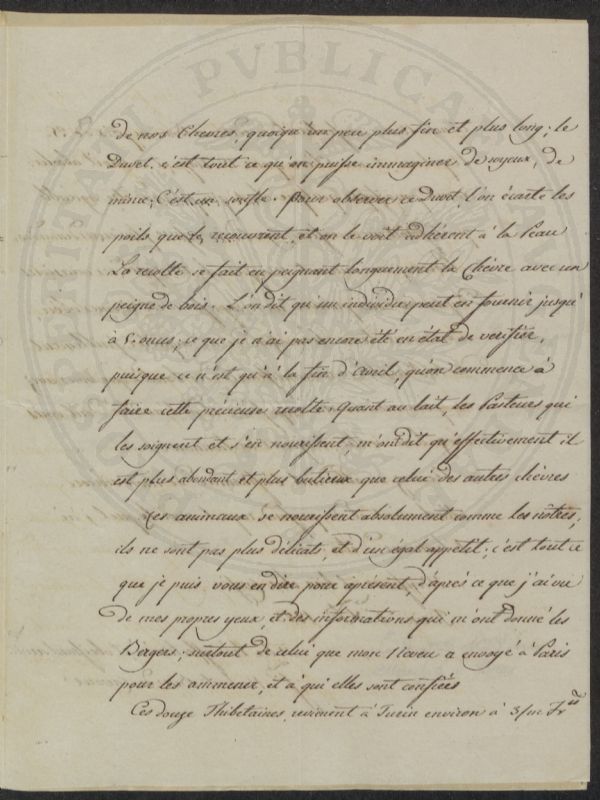 de nos Chevres, quoiqu'un peu plus fin et plus long; le
Duvet. c'est tout ce qu'on puisse immaginer de soyeux, de
mince; C'est un soufle. Pour observer ce Duvet, l'on écarte les
poils que le recouvrent, et on le voit adhérent à la Peau
La recolte se fait en peignant longuement la Chèvre avec un
peigne de bois. L'on dit qu'un individu peut en fournir jusqu'
à 5. onces; ce que je n'ai pas encore été en état de verifier,
puisque ce n'est qu'à la fin d'Avril, qu'on commence à
faire cette precieuse recolte. Quant au lait, les Pasteurs qui
les soignent et s'en nourissent, m'ont dit qu'effectivement il
est plus abondant et plus butireux que celui des autres chèvres
Ces animaux se nourissent absolument comme les nôtres,
ils ne sont pas plus délicats, et d'un égal appetit; c'est tout ce
que je puis vous en dire pour àprésent, d'après ce que j'ai vu
de mes propres yeux, et des informations qui m'ont donné les
Bergers; surtout de celui que mon Neveu a envoyé à Paris
pour les ammener, et à qui elles sont confiées
Ces douze Thibetaines, revienent à Turin environ à 3/m Fr.
PVBLICA